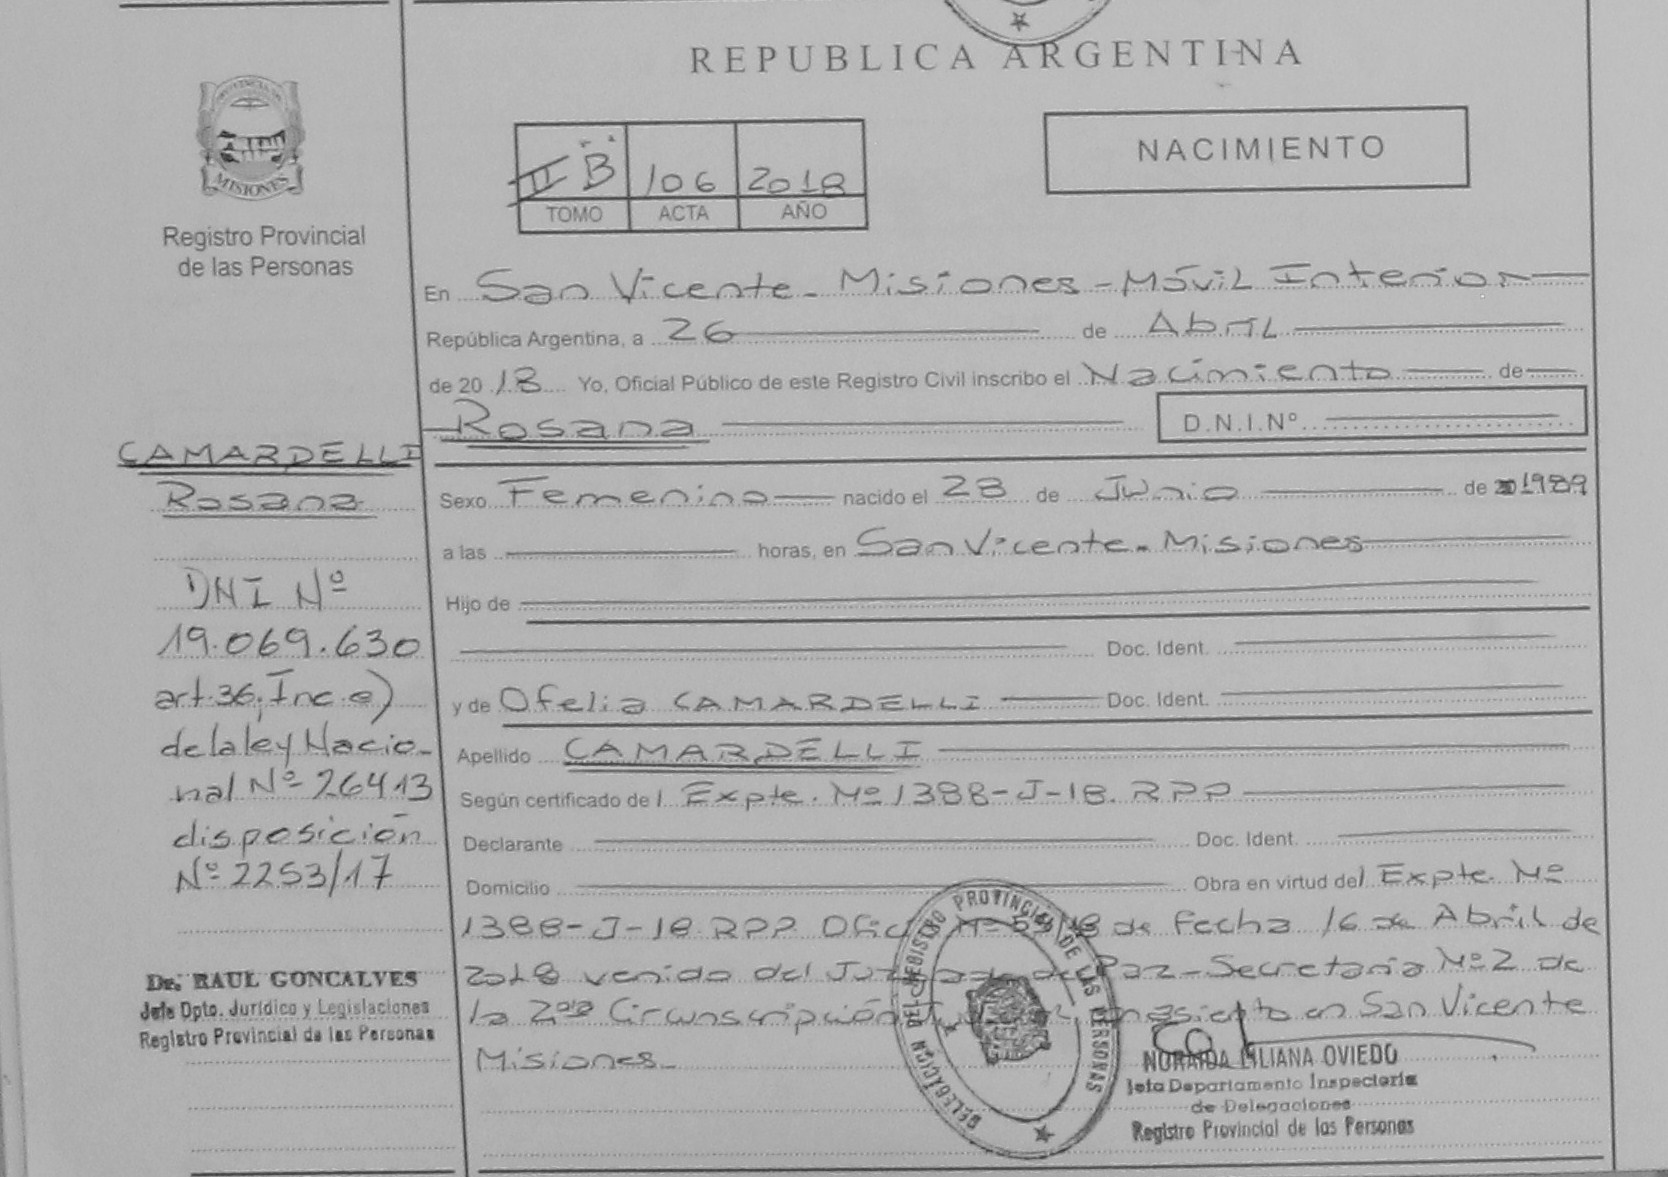 REPUBLICA ARGENTINA
NACIMIENTO
II B 106 2018
TOMO ACTA AÑO
MISIONES
Registro Provincial
de las Personas
En San Vicente - Misiones - Móvil Interior
República Argentina, a 26 de Abril
de 2018 Yo, Oficial Público de este Registro Civil inscribo el Nacimiento de
Rosana D.N.I.Nº
CAMARDELLI
Rosana
DNI Nº
19.069.630
art.36, Inc. e)
de la ley Nacio-
nal Nº 26413
disposición
Nº 2253/17
Dr. RAUL GONCALVES
Jefe Dpto. Jurídico y Legislaciones
Registro Provincial de las Personas
Sexo Femenino nacido el 28 de Junio de 1989
a las horas, en San Vicente - Misiones
Hijo de
Doc. Ident.
y de Ofelia CAMARDELLI Doc. Ident.
Apellido CAMARDELLI
Según certificado del Expte. Nº 1388-J-18. RPP
Declarante Doc. Ident.
Domicilio Obra en virtud del Expte. Nº
1388-J-18 RPP Nº de fecha 16 de Abril de
2018 venido del de Paz - Secretaria Nº 2 de
la 2da Circunscripción en San Vicente
Misiones.
DELEGACION DEL REGISTRO PROVINCIAL DE LAS PERSONAS
NORAIDA LILIANA OVIEDO
Jefa Departamento Inspectoría
de Delegaciones
Registro Provincial de las Personas